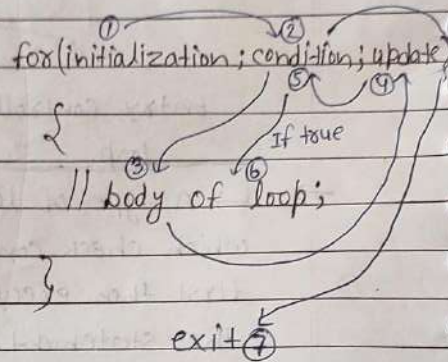 ① ②
for(initialization; condition; update)
⑤ ④
{
If true
③ ⑥
// body of loop;
}
exit ⑦